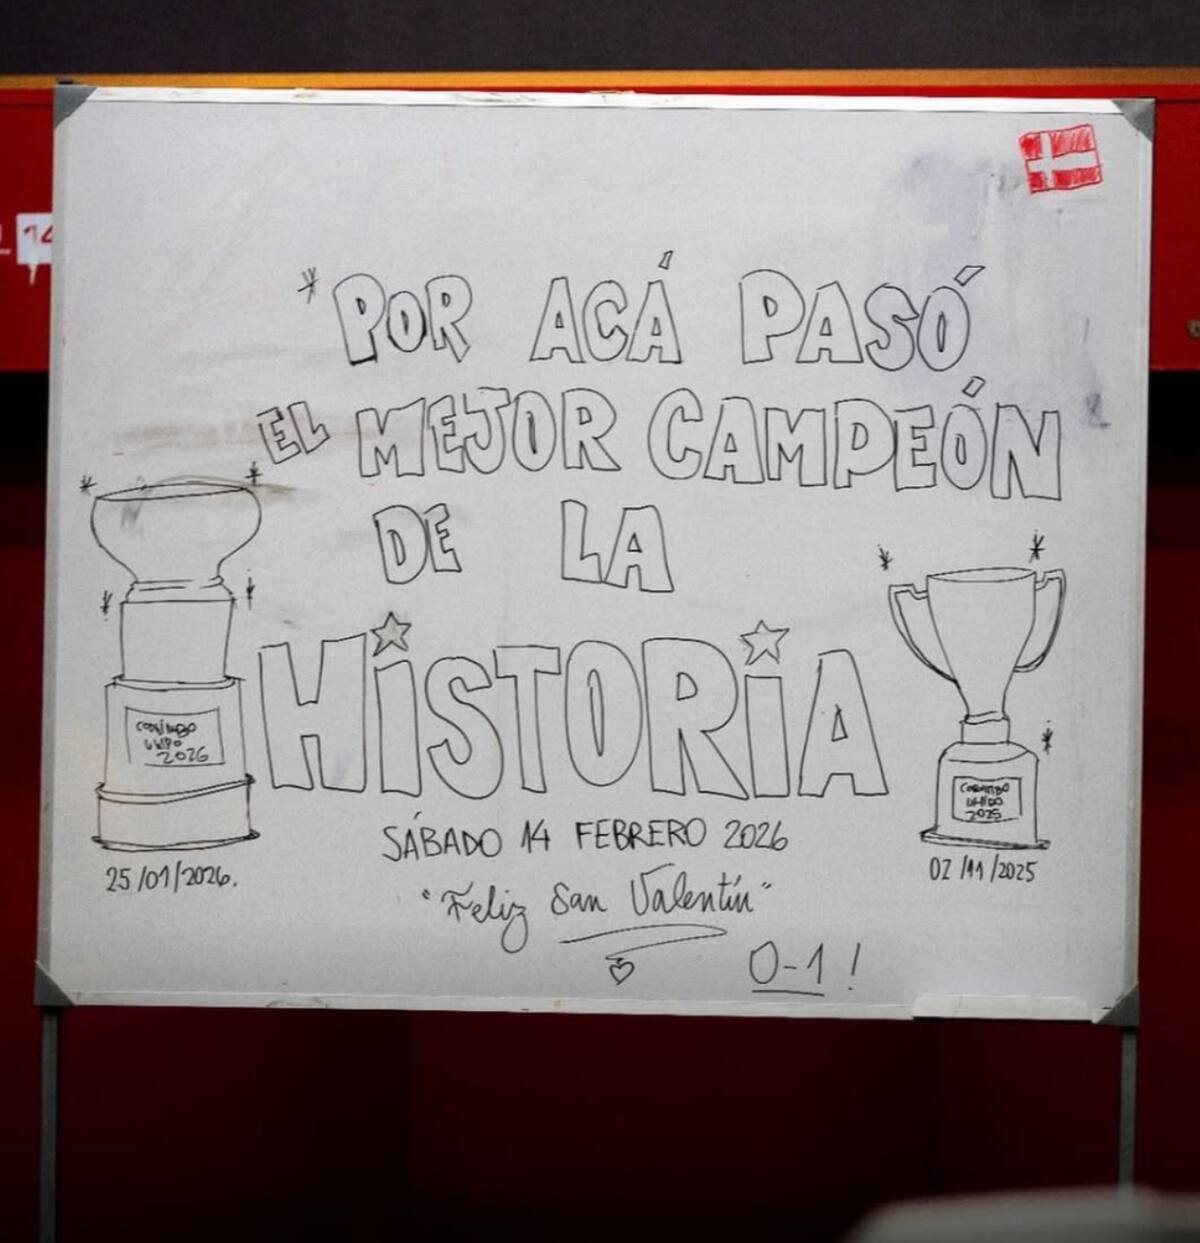 14
*POR ACÁ PASÓ
EL MEJOR CAMPEÓN
DE LA
HiSTORiA
COQUIMBO
UNIDO
2026
COQUIMBO
UNIDO
2025
SÁBADO 14 FEBRERO 2026
25/01/2026.
02/11/2025
"Feliz San Valentín"
0-1!